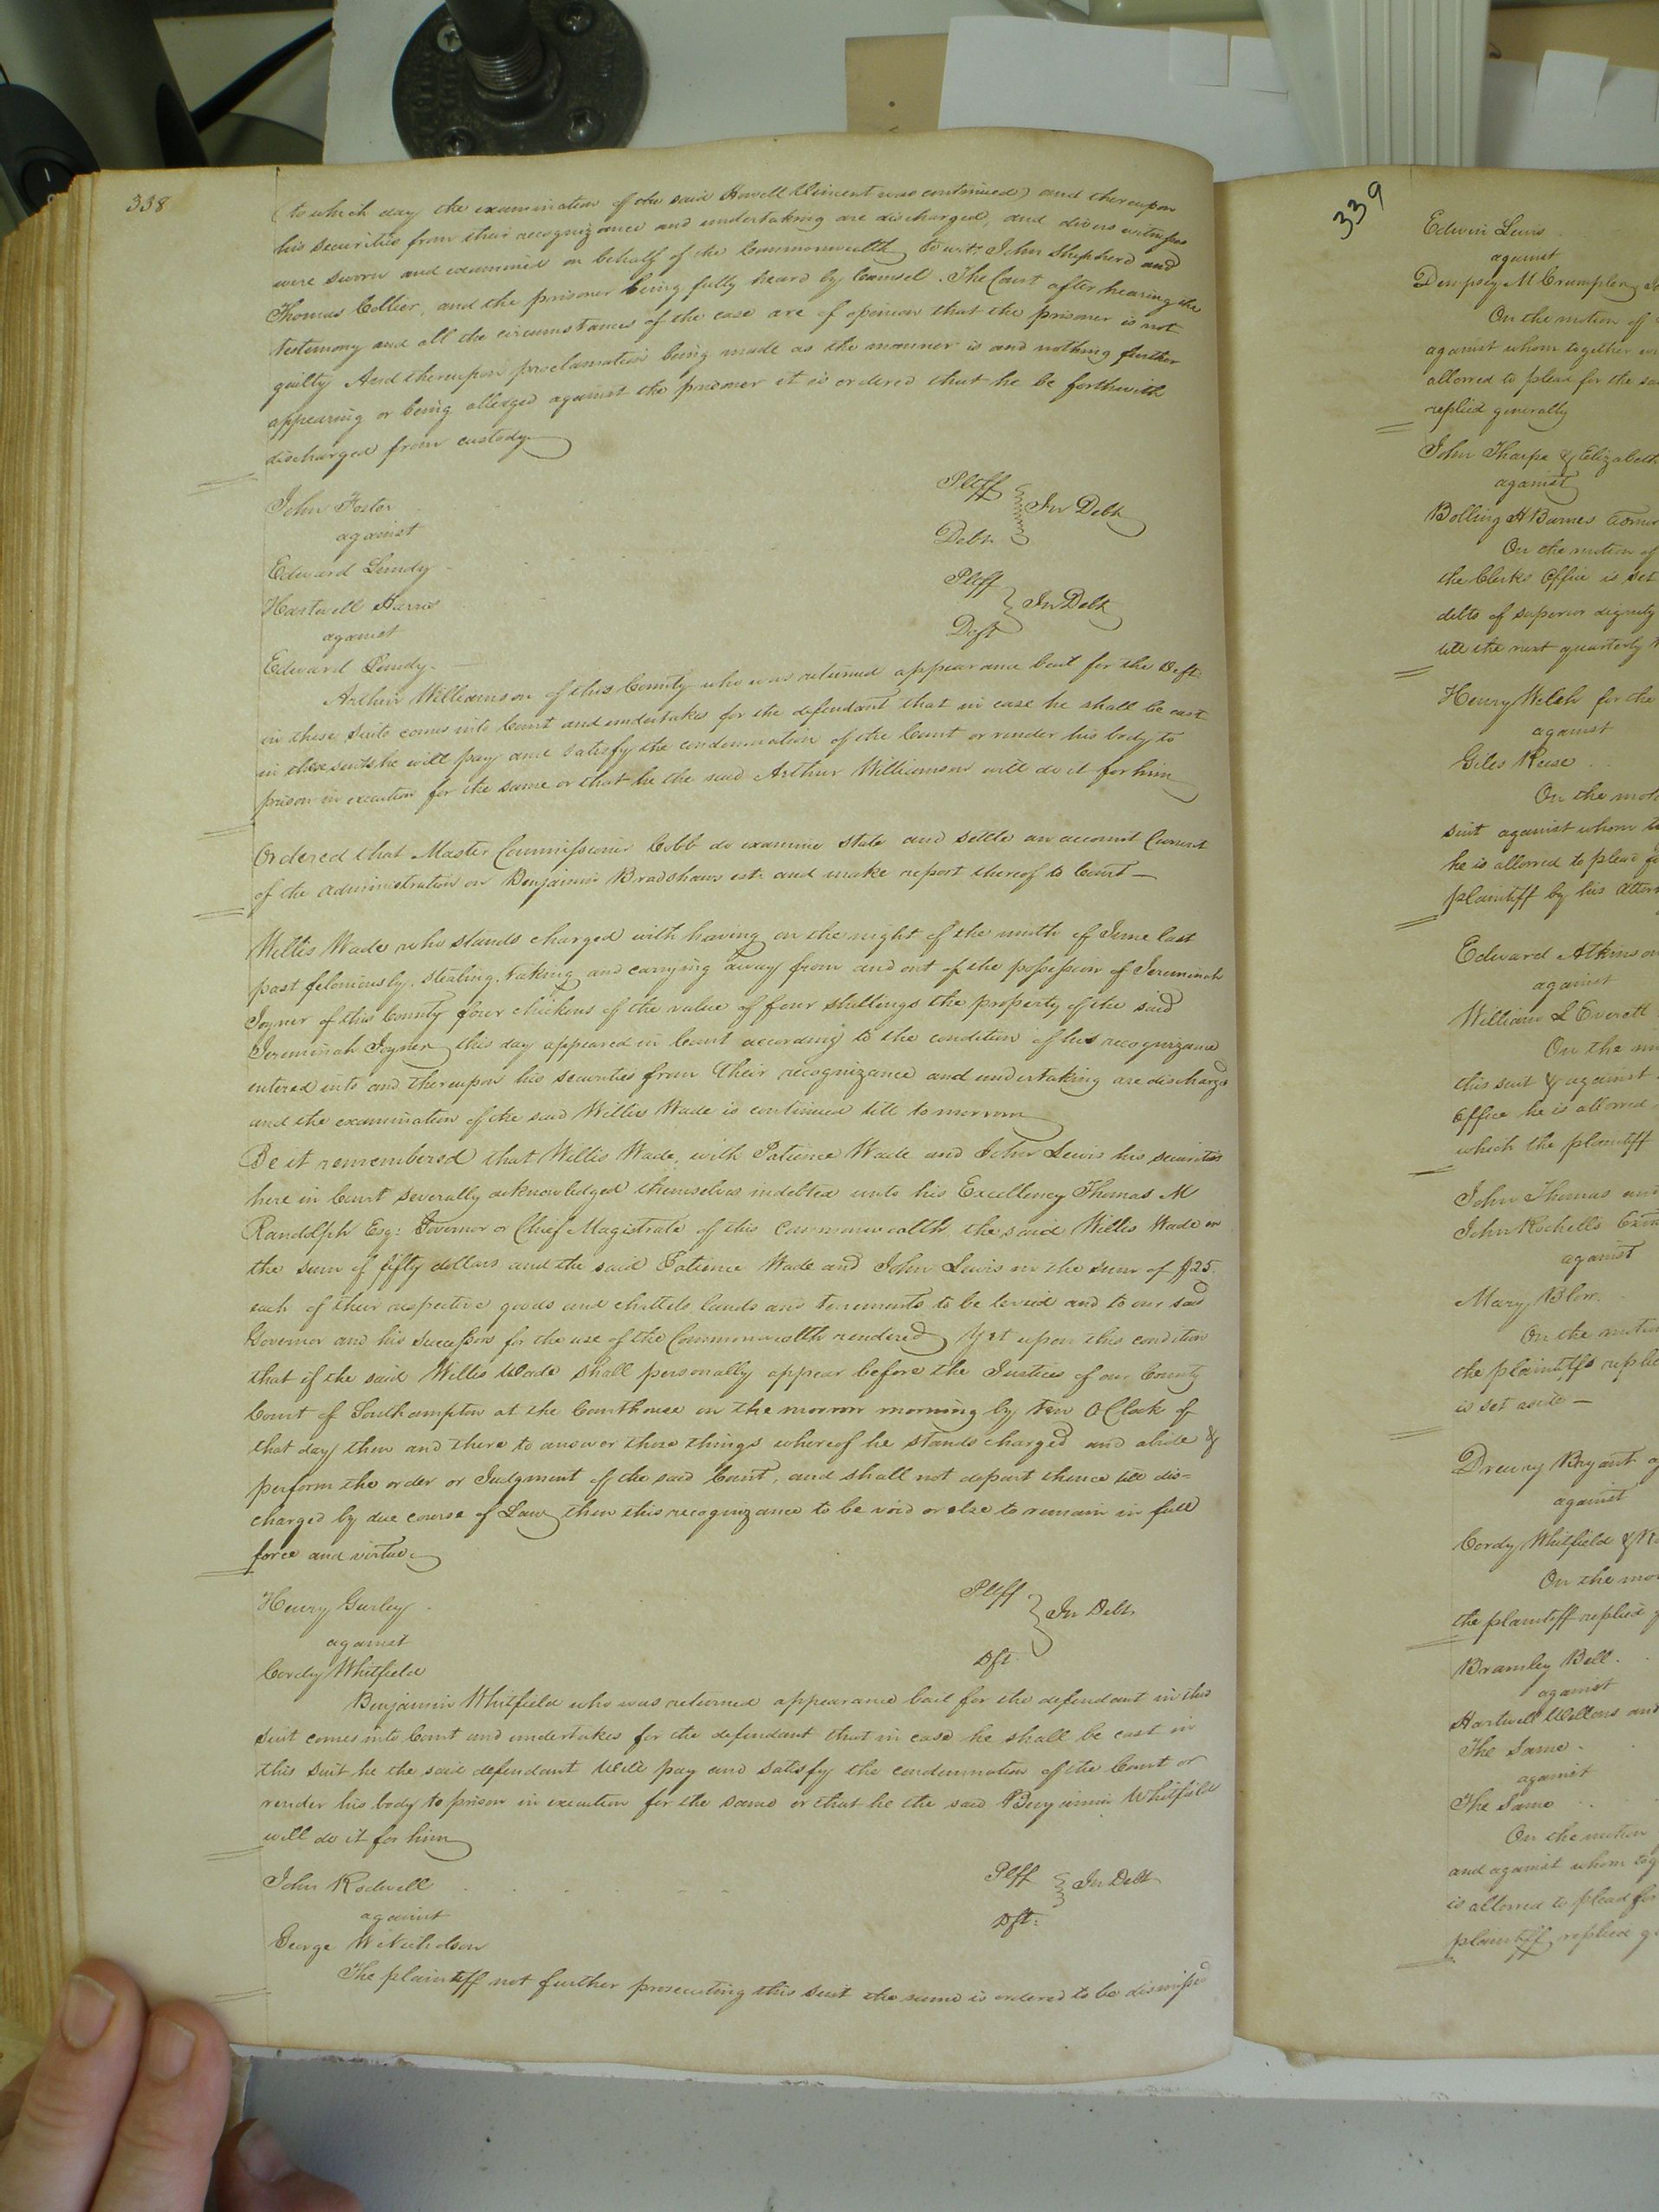 338
(to which day the examination of the said Howell Vincent was continued) and thereupon
his securities from their recognizance and undertaking are discharged, and divers witnesses
were sworn and examined on behalf of the Commonwealth, to wit: John Shepherd and
Thomas Collier, and the prisoner being fully heard by Counsel. The Court after hearing the
testimony and all the circumstances of the case are of opinion that the prisoner is not
guilty And thereupon proclamation being made as the manner is and nothing further
appearing or being alledged against the prisoner it is ordered that he be forthwith
discharged from custody.
John Foster Pltff
against In Debt
Edward Lundy Debt.
Hartwell Harris Pltff
against In Debt
Edward Lundy. Deft
Arthur Williamson of this County who was returned appearance bail for the Deft.
in these suits comes into Court and undertakes for the defendant that in case he shall be cast
in these suits he will pay and satisfy the condemnation of the Court or render his body to
prison in execution for the same or that he the said Arthur Williamson will do it for him
Ordered that Master Commissioner Cobb do examine state and settle an account Current
of the administration on Benjamin Bradshaws est. and make report thereof to Court—
Willis Wade who stands charged with having on the night of the ninth of June last
past feloniously, stealing, taking and carrying away from and out of the possession of Jereminah
Joyner of this County four chickens of the value of four shillings the property of the said
Jereminah Joyner this day appeared in Court according to the condition of his recognizance
entered into and thereupon his securities from their recognizance and undertaking are discharged
and the examination of the said Willis Wade is continued till tomorrow
Be it remembered that Willis Wade, with Patience Wade and John Lewis his securities
here in Court severally acknowledged themselves indebted unto his Excellency Thomas M
Randolph Esq: Governor or Chief Magistrate of this Commonwealth, the said Willis Wade in
the sum of fifty dollars and the said Patience Wade and John Lewis in the sum of $25.
each of their respective goods and chattels lands and tenements to be levied and to our said
Governor and his Successors for the use of the Commonwealth rendered Yet upon this condition
that if the said Willis Wade shall personally appear before the Justices of our County
Court of Southampton at the Courthouse on the morrow morning by ten O Clock of
that day then and there to answer those things whereof he stands charged and abide &
perform the order or Judgment of the said Court, and shall not depart thence till dis=
charged by due course of Law, then this recognizance to be void or else to remain in full
force and virtue.
Henry Gurley Pltff
against In Debt.
Cordy Whitfield Dft.
Benjamin Whitfield who was returned appearance bail for the defendant in this
suit comes into Court and undertakes for the defendant that in case he shall be cast in
this suit he the said defendant will pay and satisfy the condemnation of the Court or
render his body to prison in execution for the same or that he the said Benjamin Whitfield
will do it for him
John Rodwell Pltff
against In Debt
George W Nicholson Dft.
The plaintiff not further prosecuting this suit the same is ordered to be dismissed
339
Edwin Lewis
against
Dempsey M Crumpler
On the motion of
against whom together
allowed to plead for the
replied generally
John Tharpe & Elizabeth
against
Bolling H Barnes
On the motion of
the Clerks Office is set
debts of superior dignity
till the next quarterly
Henry Welch for the
against
Giles Reese
On the
suit against whom
he is allowed to plead
plaintiff by his
Edward Atkinson
against
William L Everett
On the
this suit & against
Office he is allowed
which the plaintiff
John Thomas and
John Rochells
against
Mary Blow.
On the
the plaintiffs
is set aside—
Drewry Bryant
against
Cordy Whitfield &
On the
the plaintiff replied
Bramley Bell.
against
Hartwell Wellons and
The Same.
against
The Same
On the motion
and against whom
is allowed to plead for
plaintiff replied